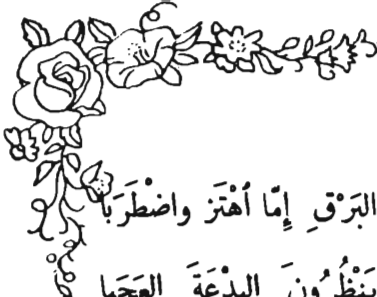 البَرْقِ إِمّا ٱهْتَز واضْطَرَبا
يَنْظُرُونَ البِدْعَةَ العَجَبا